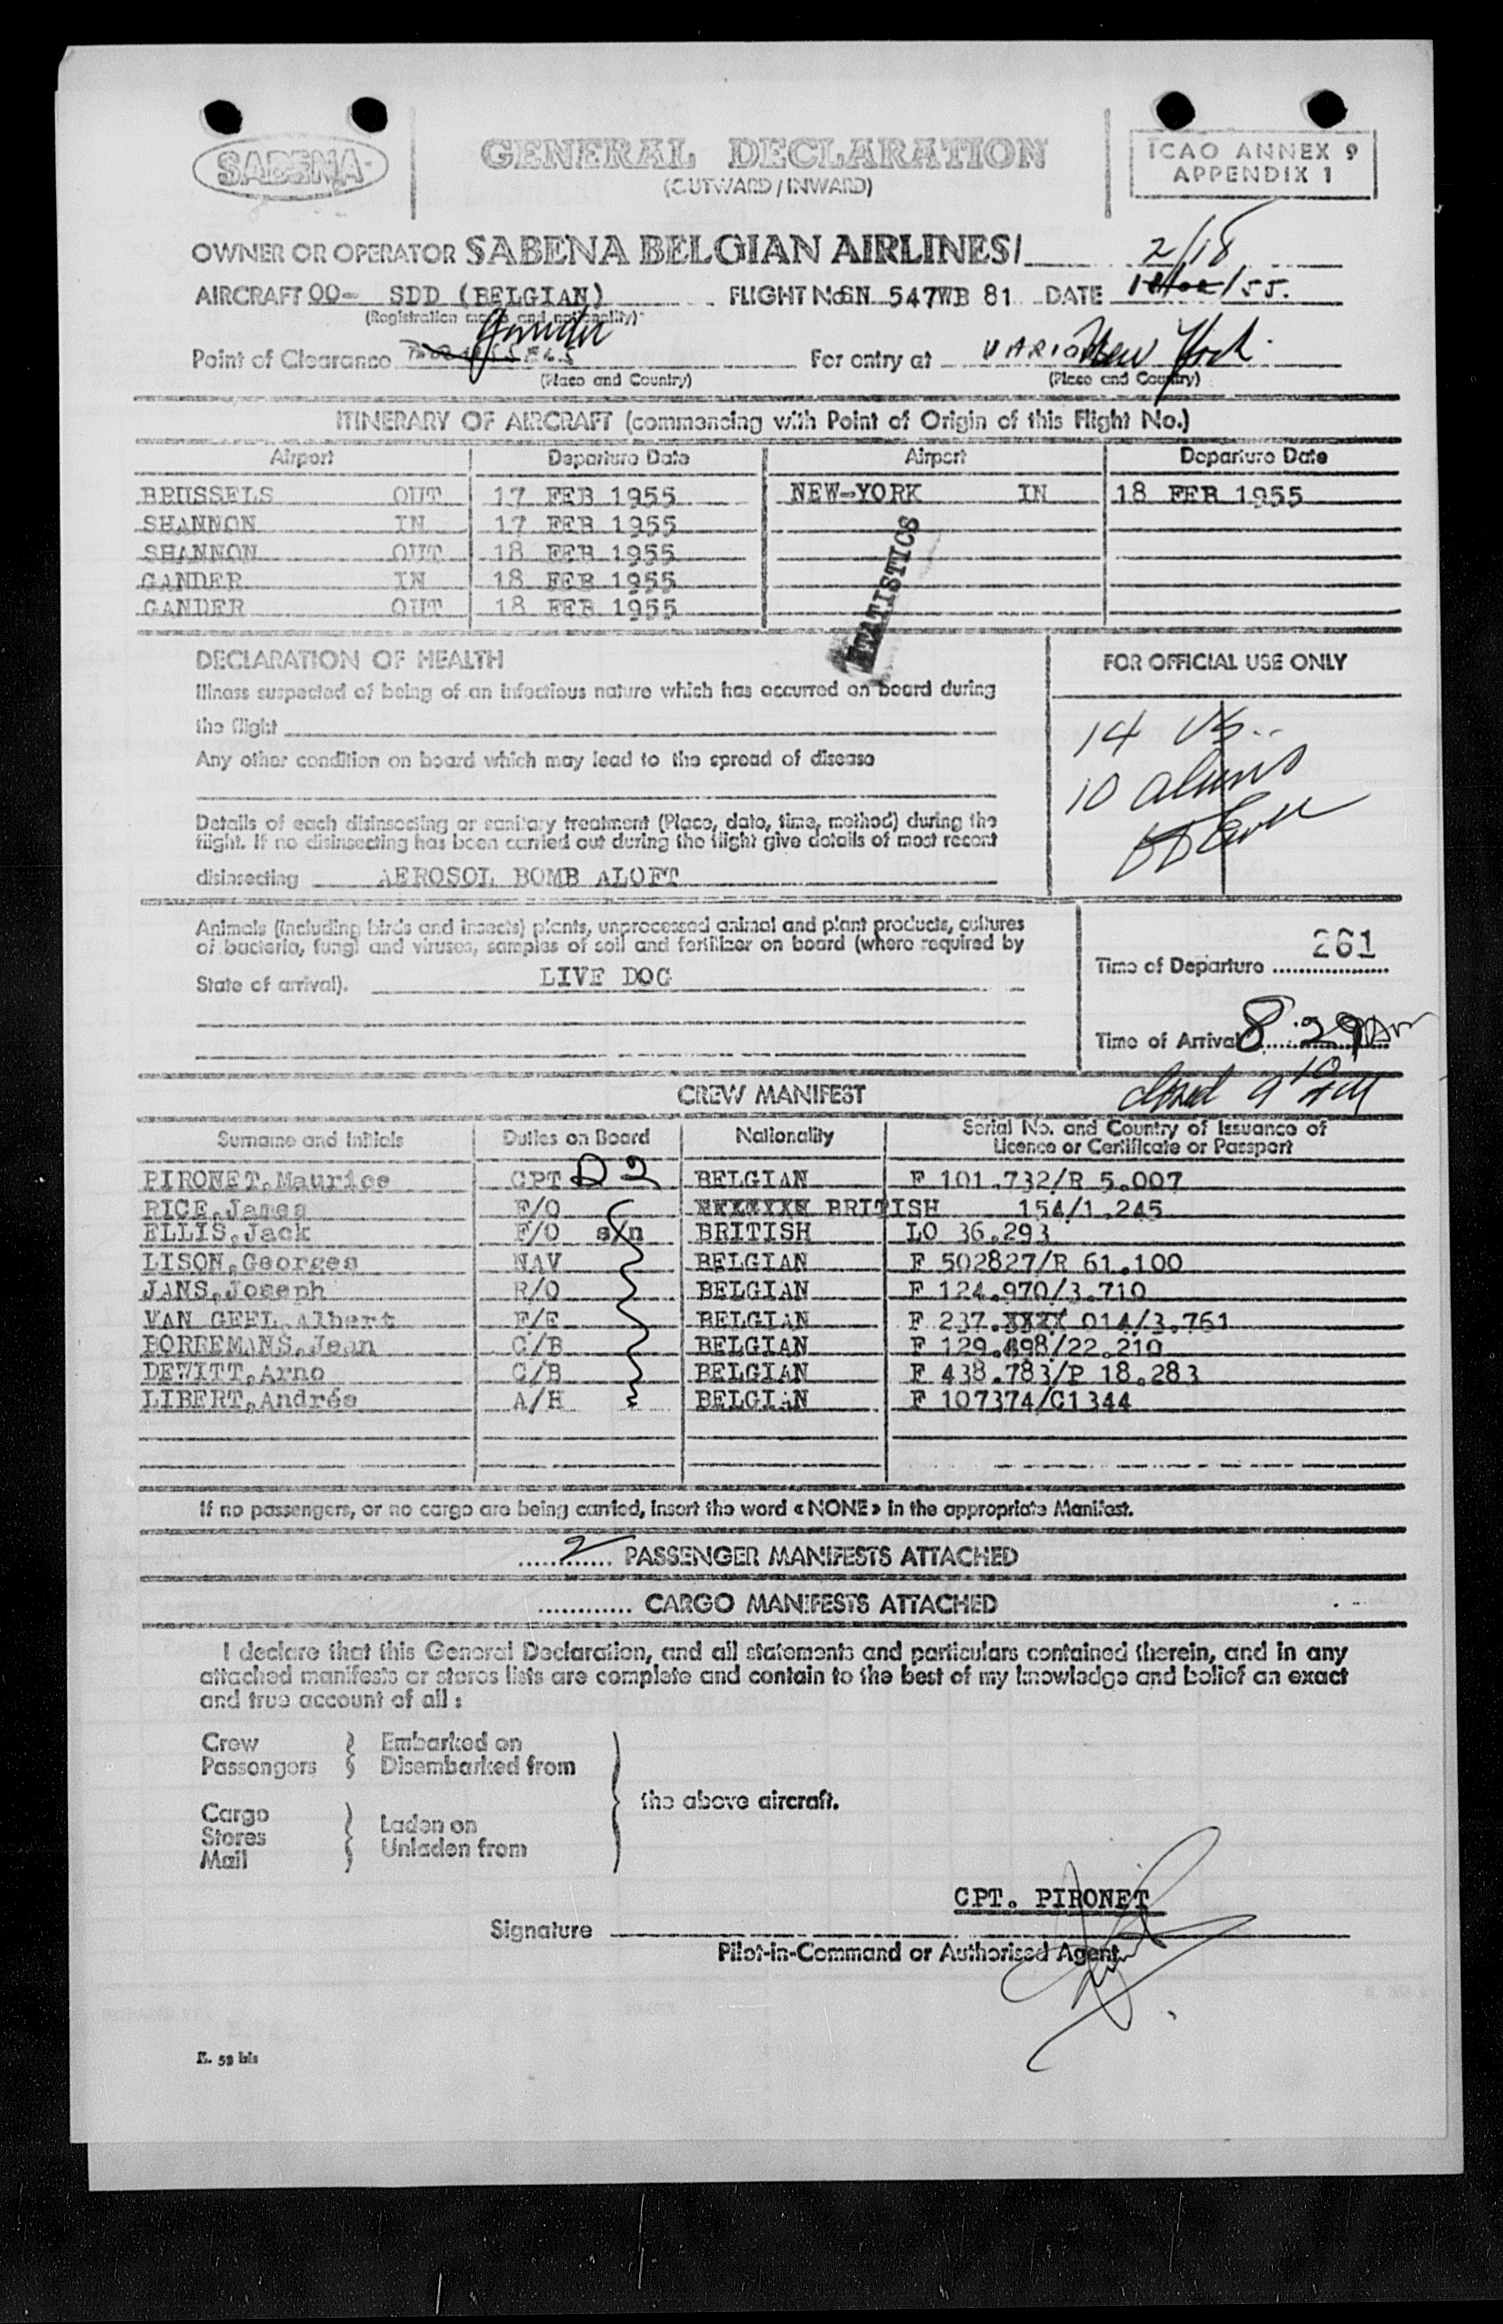 SABENA
GENERAL DECLARATION
(OUTWARD/INWARD)
ICAO ANNEX 9
APPENDIX 1
OWNER OR OPERATOR SABENA BELGIAN AIRLINES/
2/18
AIRCRAFT OO- SDD (BELGIAN) FLIGHT No. SN 547WB 81 DATE 18/02/55.
(Registration marks and nationality)
Point of Clearance BRUSSELS Gander For entry at VARIOUS New York.
(Place and Country) (Place and Country)
ITINERARY OF AIRCRAFT (commencing with Point of Origin of this Flight No.)
Airport Departure Date Airport Departure Date
BRUSSELS OUT 17 FEB 1955 NEW-YORK IN 18 FEB 1955
SHANNON IN 17 FEB 1955
SHANNON OUT 18 FEB 1955
GANDER IN 18 FEB 1955
GANDER OUT 18 FEB 1955
STATISTICS
DECLARATION OF HEALTH
Illness suspected of being of an infectious nature which has occurred on board during
the flight
Any other condition on board which may lead to the spread of disease
Details of each disinsecting or sanitary treatment (Place, date, time, method) during the
flight. If no disinsecting has been carried out during the flight give details of most recent
disinsecting AEROSOL BOMB ALOFT
FOR OFFICIAL USE ONLY
14 US..
10 aliens
Animals (including birds and insects) plants, unprocessed animal and plant products, cultures
of bacteria, fungi and viruses, samples of soil and fertilizer on board (where required by
State of arrival). LIVE DOG
261
Time of Departure
Time of Arrival 8:29 Am
CREW MANIFEST
Surname and Initials Duties on Board Nationality Serial No. and Country of Issuance of
Licence or Certificate or Passport
PIRONET,Maurice CPT D2 BELGIAN F 101.732/R 5.007
RICE,James F/O BRITISH 154/1.245
ELLIS,Jack F/O s/n BRITISH LO 36.293
LISON,Georges NAV BELGIAN F 502827/R 61.100
JANS,Joseph R/O BELGIAN F 124.970/3.710
VAN GEEL,Albert F/E BELGIAN F 237.XXXX 014/3.761
BORREMANS,Jean C/B BELGIAN F 129.898/22.210
DEWITT,Arno C/B BELGIAN F 438.783/P 18.283
LIBERT,Andrée A/H BELGIAN F 107374/C1344
If no passengers, or no cargo are being carried, insert the word «NONE» in the appropriate Manifest.
2 PASSENGER MANIFESTS ATTACHED
CARGO MANIFESTS ATTACHED
I declare that this General Declaration, and all statements and particulars contained therein, and in any
attached manifests or stores lists are complete and contain to the best of my knowledge and belief an exact
and true account of all :
Crew Embarked on
Passengers Disembarked from
the above aircraft.
Cargo Laden on
Stores Unladen from
Mail
CPT. PIRONET
Signature
Pilot-in-Command or Authorised Agent